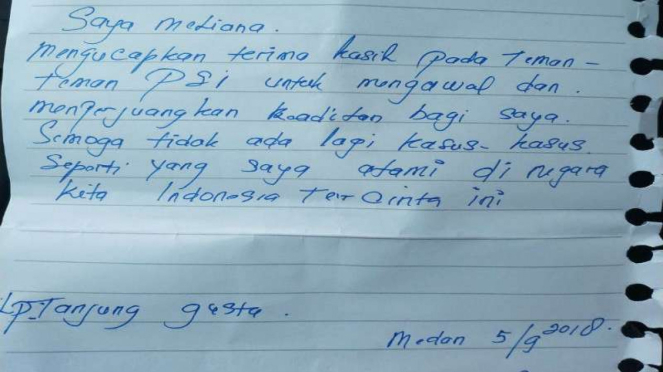 Saya Meliana.
mengucapkan terima kasih pada Teman-
teman PSI untuk mengawal dan.
memperjuangkan keadilan bagi saya.
Semoga tidak ada lagi kasus-kasus.
Seperti yang saya alami di negara
kita Indonesia TerCinta ini
LP.Tanjung gusta.
Medan 5/9 2018.